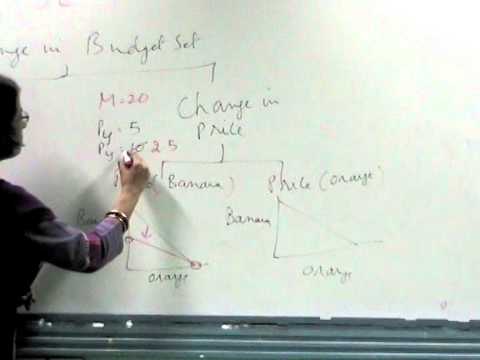 nge in Budget Set
M = 20
Change in
Price
Py = 5
Py = 10 2 5
(Banana)
Price (Orange)
Ba
Banana
Orange
Orange